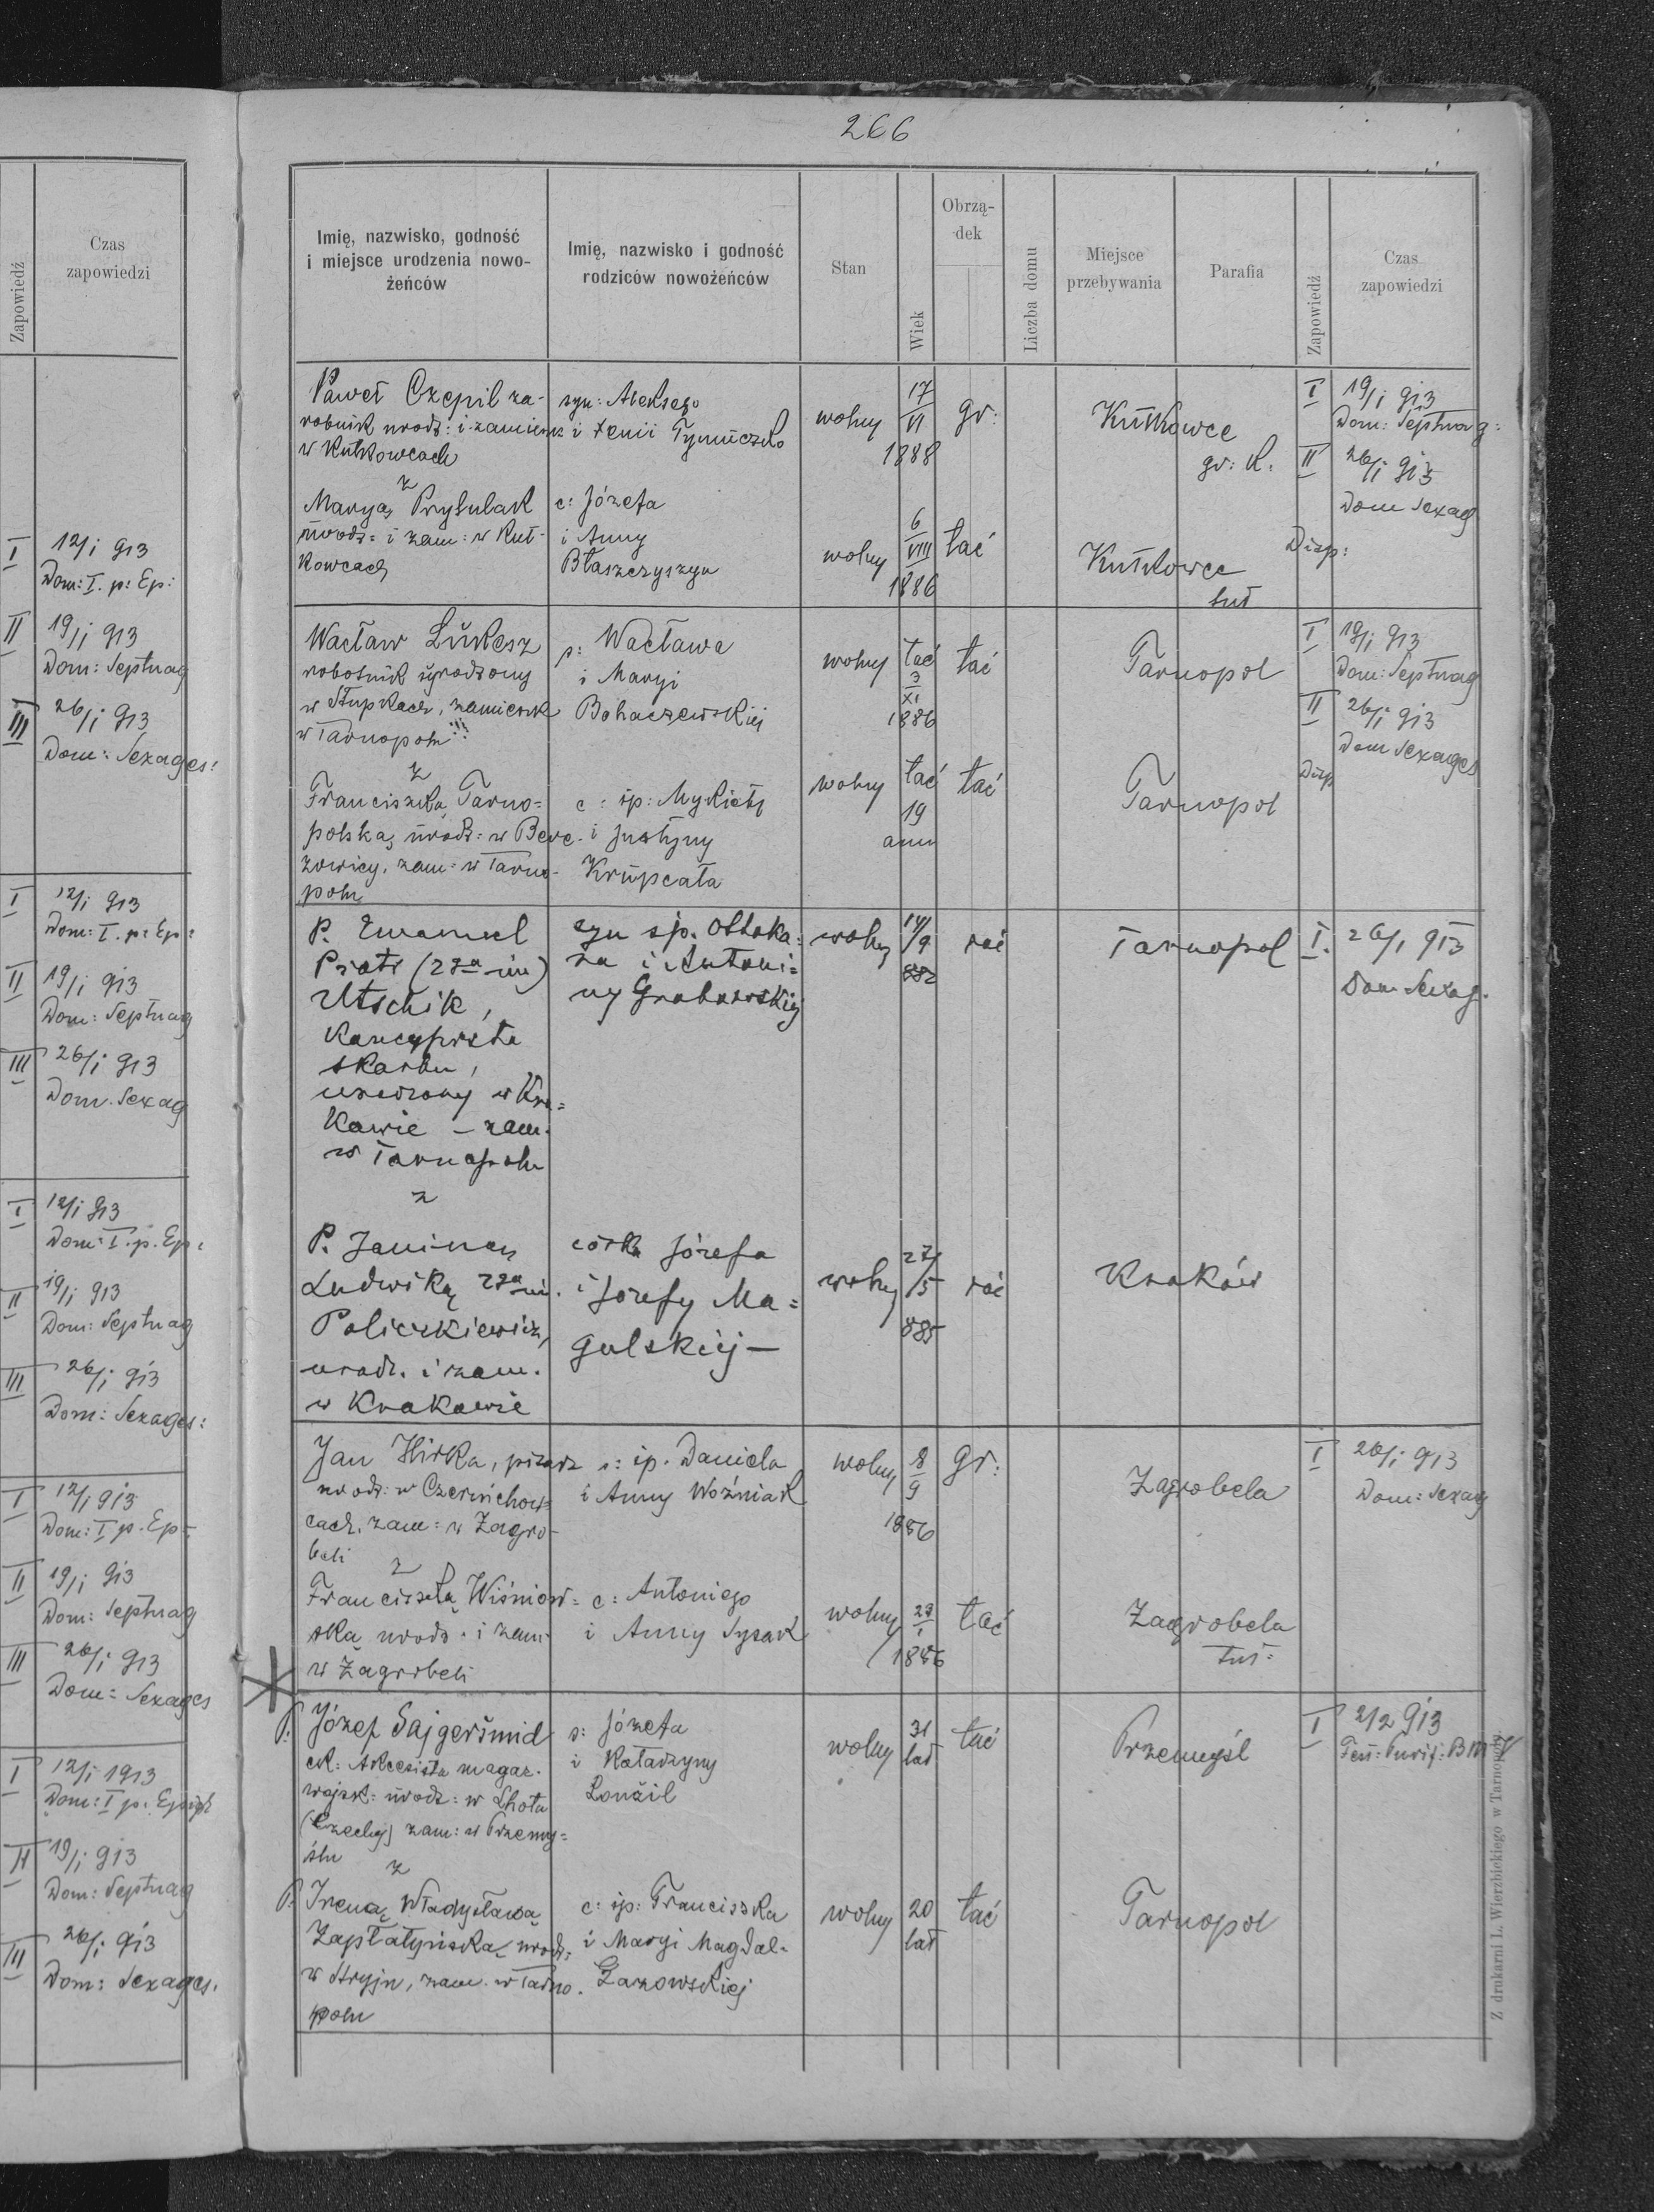 Zapowiedź
Czas
zapowiedzi
I 12/i 913
Dom: I. p: Ep:
II 19/i 913
Dom: Septuag
III 26/i 913
Dom: Sexages:
I 12/i 913
Dom: I. p: Ep:
II 19/i 913
Dom: Septuag
III 26/i 913
Dom. Sexag
I 12/i 913
Dom: I. p. Ep:
II 19/i 913
Dom: Septuag
III 26/i 913
Dom: Sexages:
I 12/i 913
Dom: I p. Ep:
II 19/i 913
Dom: Septuag
III 26/i 913
Dom: Sexages
I 12/i 1913
Dom: I p. Epiph
II 19/i 913
Dom: Septuag
III 26/i 913
Dom: Sexages.
266
Imię, nazwisko, godność
i miejsce urodzenia nowo-
żeńców
Imię, nazwisko i godność
rodziców nowożeńców
Stan
Wiek
Obrzą-
dek
Liczba domu
Miejsce
przebywania
Parafia
Zapowiedź
Czas
zapowiedzi
Paweł Czepil za- syn: Aleksego wolny 17 gr: Kutkowce I 19/i 913
robnik urodz: i zamieszk i Xenii Tymuczko VI Dom: Septuag:
w Kutkowcach 1888 gr: k. II 26/i 913
z Dom Sexag
Maryą Prytulak c: Józefa 6
urodz: i zam: w Kut- i Anny wolny VIII łać Kutkowce Disp:
kowcach Błaszczyszyn 1886 tut
Wacław Lukesz s: Wacława wolny łać łać Tarnopol I 19/i 913
robotnik urodzony i Maryi 3 Dom: Septuag
w Stupkach, zamieszk Bohaczewskiej XI II 26/i 913
w Tarnopolu 1886 Dom Sexages
z
Franciszką Tarno= c: śp: Mykiety wolny łać łać Tarnopol Disp
polską urodz: w Bere- i Justyny 19
zowicy, zam: w Tarno- Krupcała ann
polu
P. Emanuel syn śp. Ottoka= wolny 14/9 łać Tarnopol I. 26/1 913
Piotr (2ga im) ra i Antoni= 882 Dom. Sexag.
Utschik, ny Grabowskiej
Kancypista
skarbu,
urodzony w Kra=
kowie – zam.
w Tarnopolu
z
P. Janiną córka Józefa 27/5
Ludwiką 2ga im. i Józefy Ma= wolny łać Kraków
Policzkiewicz, gulskiej – 885
urodz. i zam.
w Krakowie
Jan Hirka, pisarz s: śp. Daniela wolny 8 gr: Zagrobela I 26/i 913
urodz: w Czernichow= i Anny Woźniak 9 Dom: Sexag
cach, zam: w Zagro- 1886
beli
z
Franciszką Wiśniow= c: Antoniego wolny 23 łać Zagrobela
ską urodz: i zam: i Anny Sysak i tut=
w Zagrobeli 1886
P. Józef Sajgeršmid s: Józefa wolny 31 łać Przemyśl I 2/2 913
ck: Akcesista magaz. i Katarzyny lat Fest: Purif: BMV
wojsk: urodz: w Lhota Loužil
(Czechy) zam: w Przemy=
ślu
z
P. Ireną Władysławą c: śp: Franciszka wolny 20 łać Tarnopol
Zapłatyńską urodz: i Maryi Magdal- lat
w Stryju, zam. w Tarno. Zazowskiej
polu
Z drukarni L. Wierzbickiego w Tarnopolu.